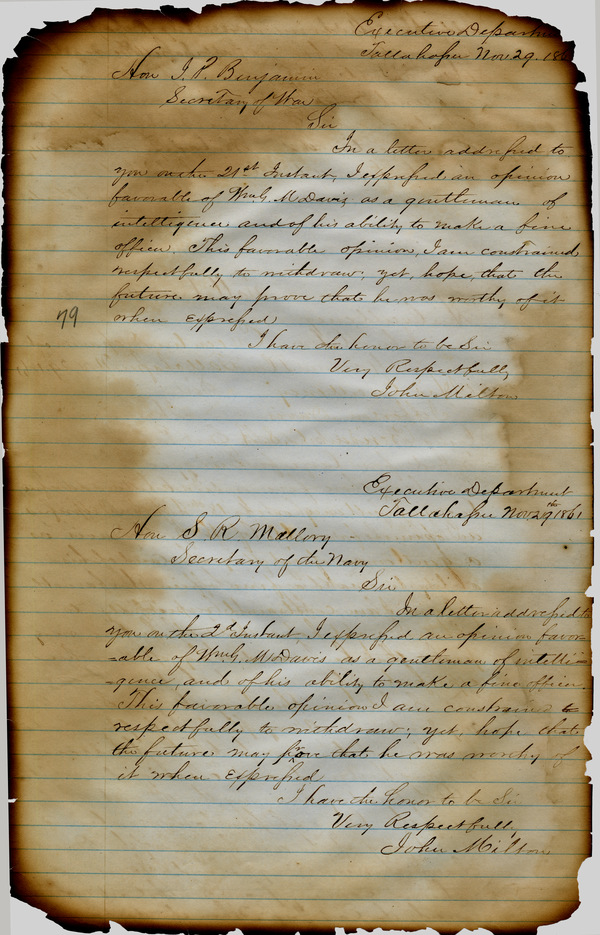 Executive Departm
Tallahassee Nov. 29. 186
Hon J. P. Benjamin
Secretary of War
Sir
In a letter addressed to
you on the 21st Instant, I expressed an opinion
favorable of Wm G. M Davis as a gentleman of
intelligence and of his ability to make a fine
officer. This favorable opinion, I am constrained
respectfully to withdraw; yet, hope, that the
future may prove that he was worthy of it
when expressed
79
I have the honor to be Sir
Very Respectfully
John Milton
Executive Department
Tallahassee Nov. 29th 1861
Hon S. R. Mallory
Secretary of the Navy
Sir
In a letter addressed to
you on the 2d Instant I expressed an opinion favor-
-able of Wm G. M Davis as a gentleman of intelli-
-gence, and of his ability to make a fine officer.
This favorable opinion I am constrained to
respectfully to withdraw; yet, hope that
the future may prove that he was worthy of
it when expressed
I have the honor to be Sir
Very Respectfully,
John Milton